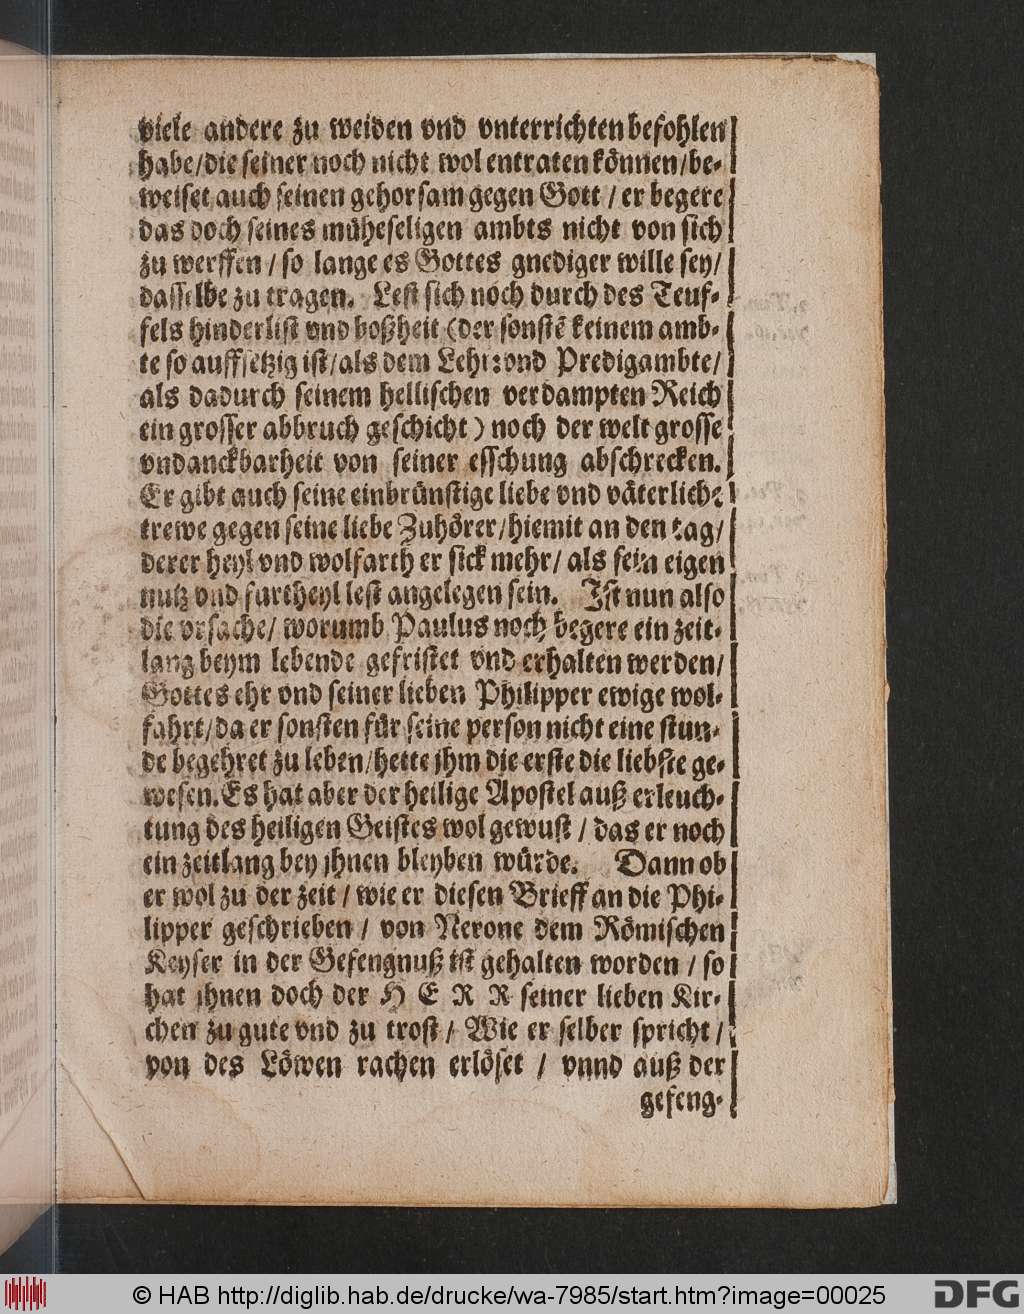 viele andere zu weiden vnd vnterrichten befohlen
habe/die seiner noch nicht wol entraten können/be-
weiset auch seinen gehorsam gegen Gott / er begere
das doch seines müheseligen ambts nicht von sich
zu werffen / so lange es Gottes gnediger wille sey/
dasselbe zu tragen. Lest sich noch durch des Teuf-
fels hinderlist vnd boßheit (der sonstē keinem amb-
te so auffsetzig ist/als dem Lehr vnd Predigambte/
als dadurch seinem hellischen verdampten Reich
ein grosser abbruch geschicht) noch der welt grosse
vndanckbarheit von seiner esschung abschrecken.
Er gibt auch seine einbrünstige liebe vnd väterliche
trewe gegen seine liebe Zuhörer/hiemit an den tag/
derer heyl vnd wolfarth er sick mehr/ als sein eigen
nutz vnd furtheyl lest angelegen sein. Ist nun also
die vrsache/ worumb Paulus noch begere ein zeit-
lang beym lebende gefristet vnd erhalten werden/
Gottes ehr vnd seiner lieben Philipper ewige wol-
fahrt/da er sonsten für seine person nicht eine stun-
de begehret zu leben/hette jhm die erste die liebste ge-
wesen. Es hat aber der heilige Apostel auß erleuch-
tung des heiligen Geistes wol gewust / das er noch
ein zeitlang bey jhnen bleyben würde. Dann ob
er wol zu der zeit / wie er diesen Brieff an die Phi-
lipper geschrieben / von Nerone dem Römischen
Keyser in der Gefengnuß ist gehalten worden / so
hat jhnen doch der HERR seiner lieben Kir-
chen zu gute vnd zu trost/ Wie er selber spricht/
von des Löwen rachen erlöset / vnnd auß der
gefeng-
© HAB http://diglib.hab.de/drucke/wa-7985/start.htm?image=00025
DFG